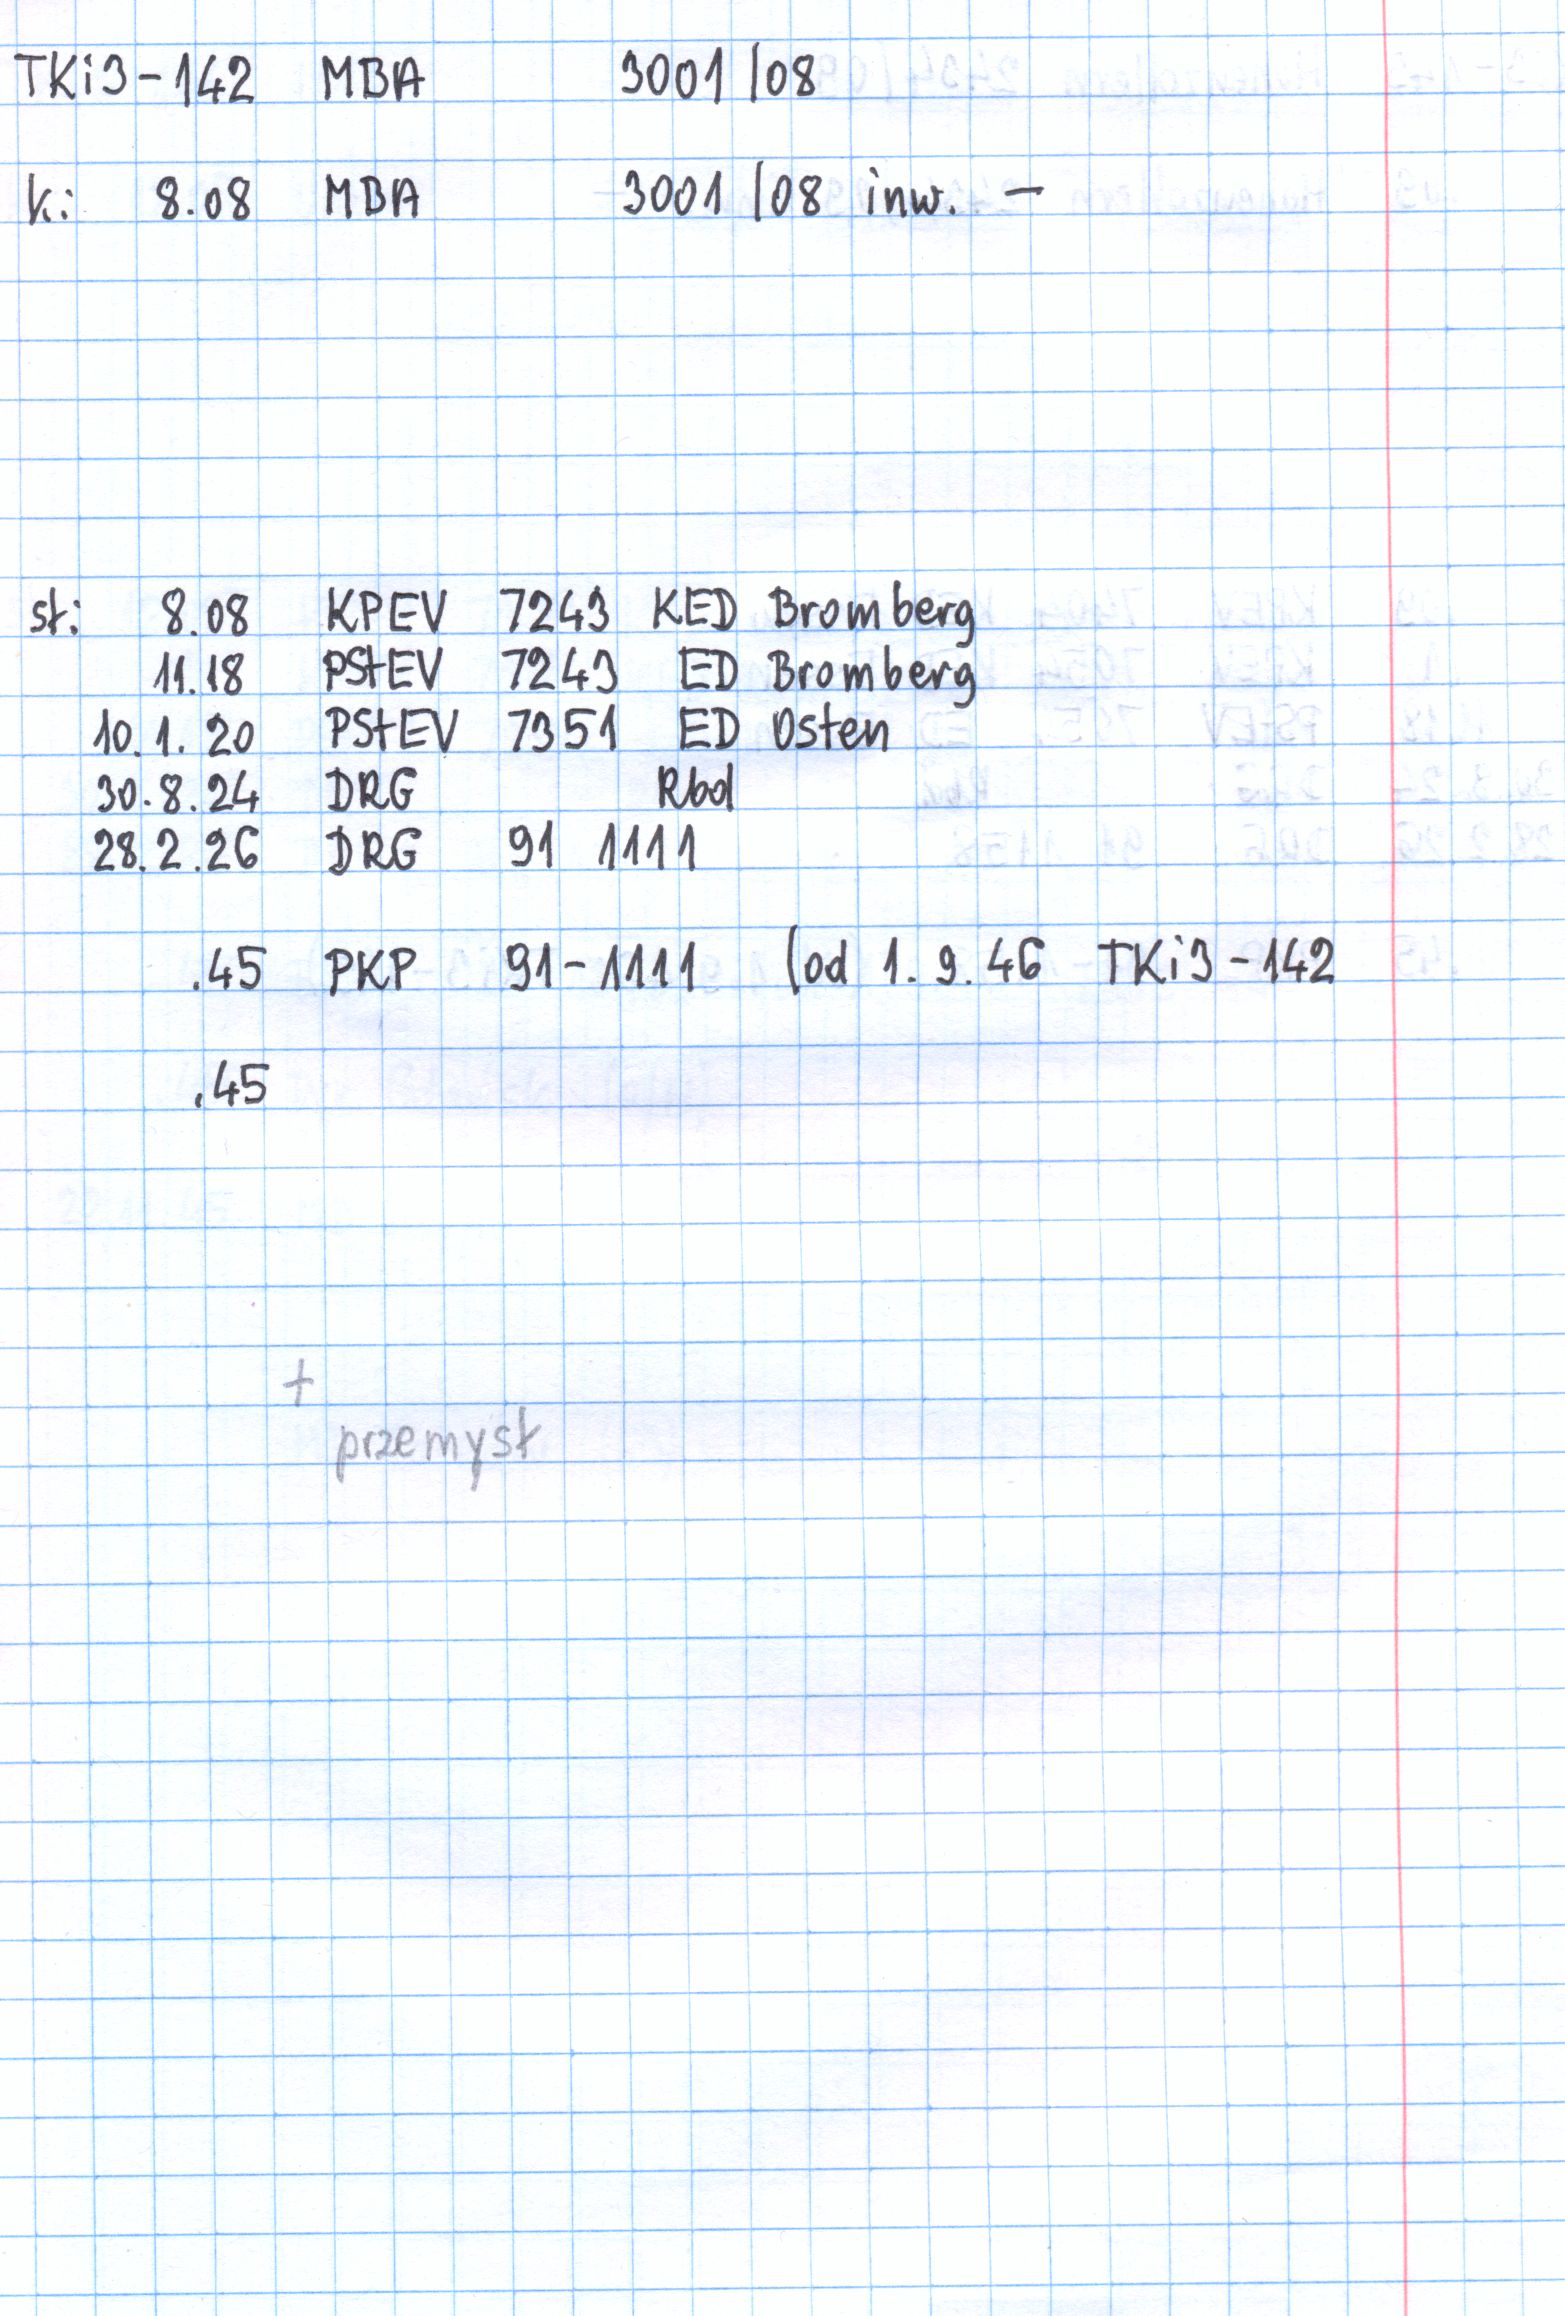 TKi3-142 MBA 3001/08
k: 8.08 MBA 3001/08 inw. –
st: 8.08 KPEV 7243 KED Bromberg
11.18 PStEV 7243 ED Bromberg
10.1.20 PStEV 7351 ED Osten
30.8.24 DRG Rbd
28.2.26 DRG 91 1111
.45 PKP 91-1111 (od 1.9.46 TKi3-142
.45
+
przemysł